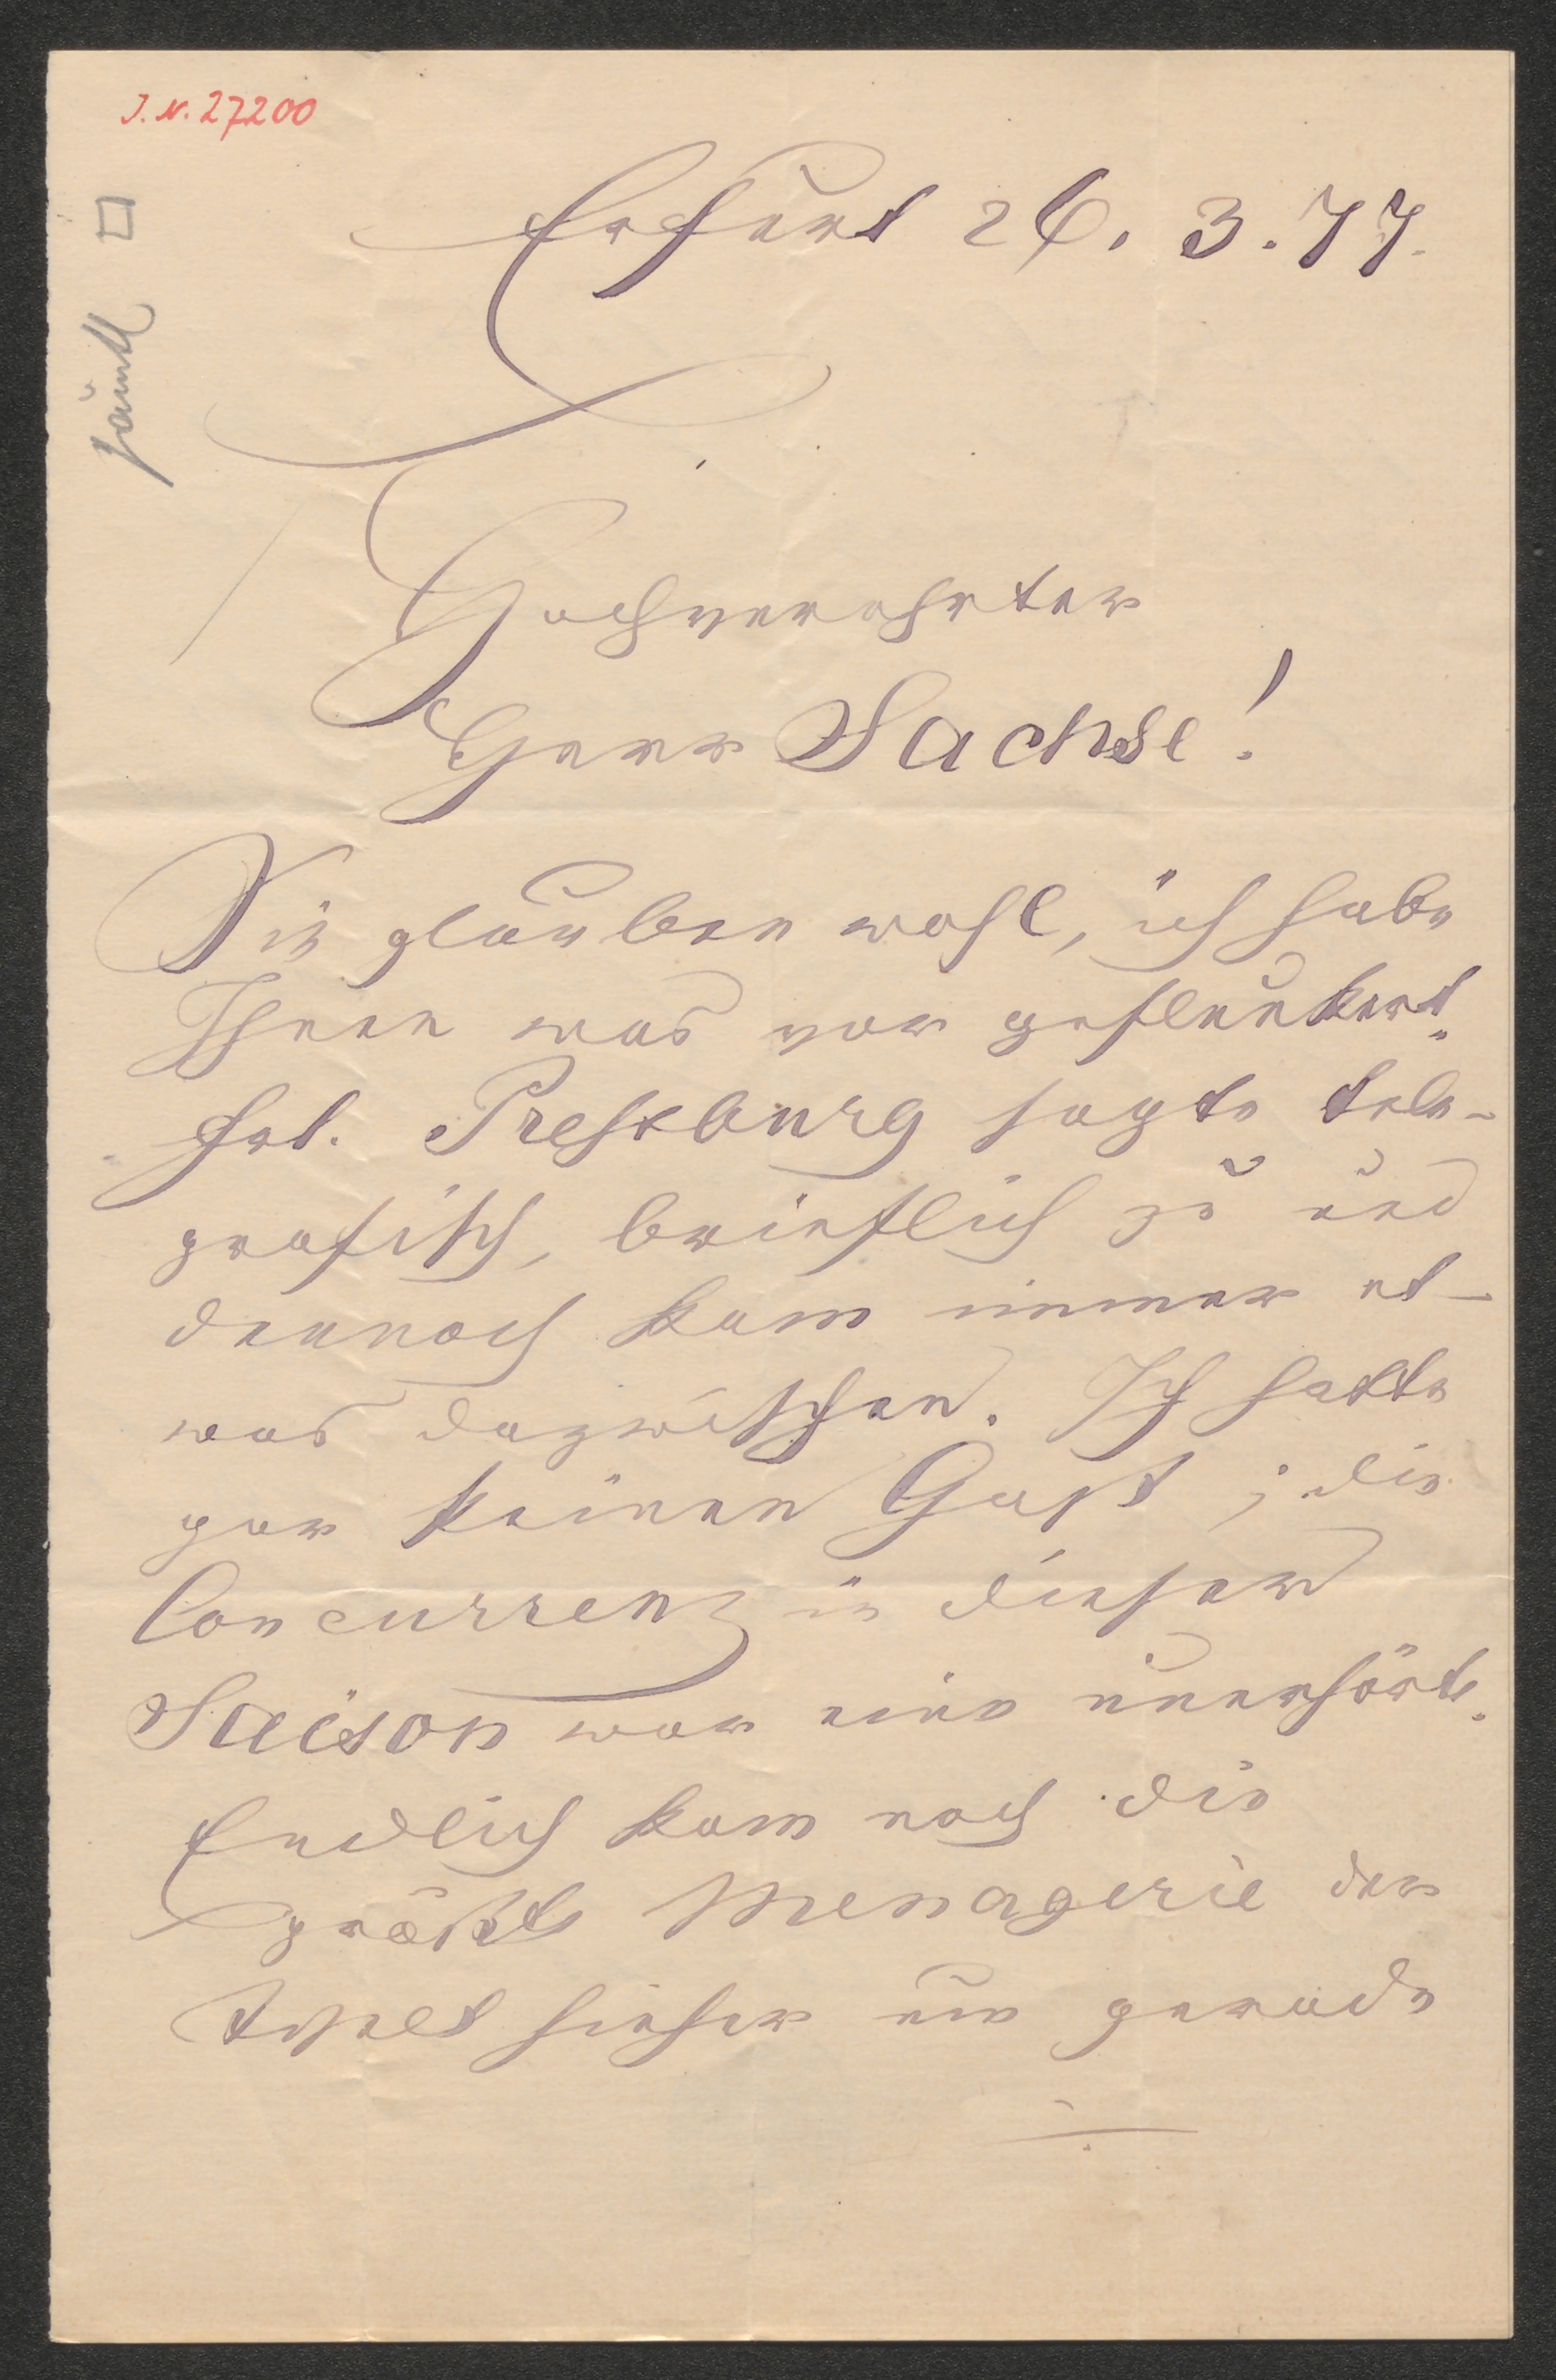 J. N. 27200
Erfurt 26. 3. 77.
Hochverehrter
Herr Sachse!
Sie glauben wohl, ich habe
Ihnen was vor geflunkert.
Frl. Pressburg sagte tele-
grafisch, brieflich zu und
dennoch kam immer et-
was dazwischen. Ich hatte
gar keinen Gast; die
Concurrenz in dieser
Saison war eine unerhörte.
Endlich kam noch die
größte Menagerie der
Welt hieher um gerade